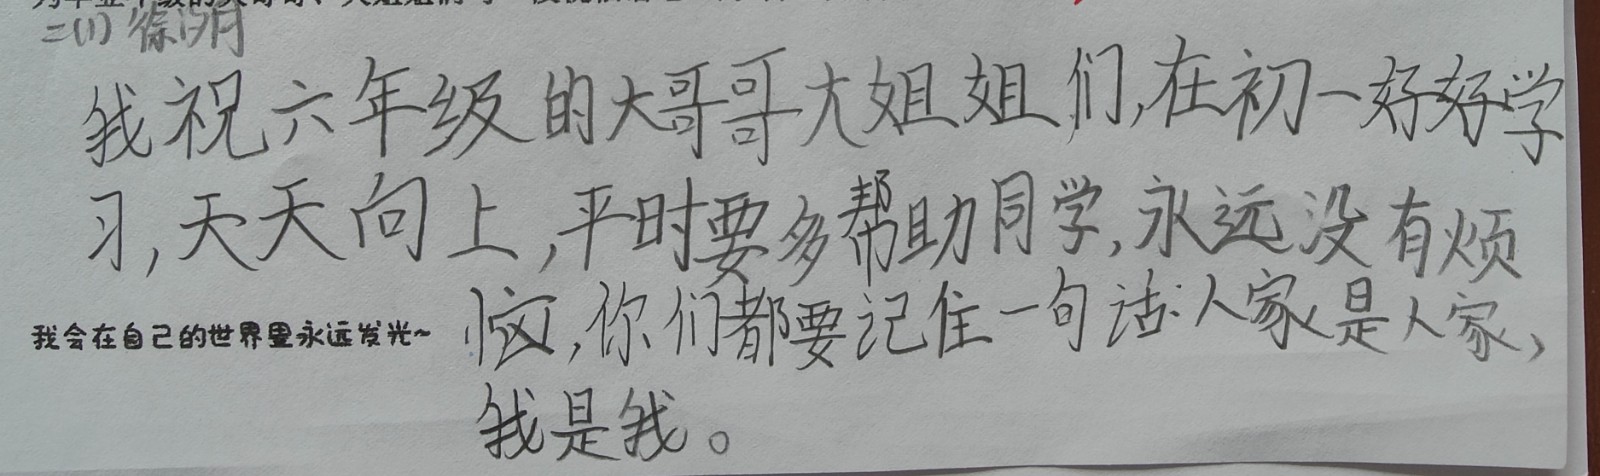 二(1) 徐汐月
我祝六年级的大哥哥大姐姐们,在初一好好学
习,天天向上,平时要多帮助同学,永远没有烦
恼,你们都要记住一句话:人家是人家,
我会在自己的世界里永远发光~
我是我。